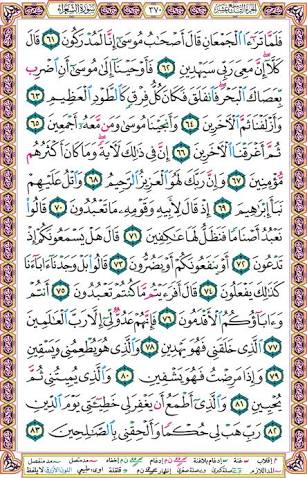 سورة الشعراء ٣٧٠ الجزء التاسع عشر
فَلَمَّا تَرَٰٓءَا ٱلْجَمْعَانِ قَالَ أَصْحَٰبُ مُوسَىٰٓ إِنَّا لَمُدْرَكُونَ ٦١ قَالَ
كَلَّآ إِنَّ مَعِىَ رَبِّى سَيَهْدِينِ ٦٢ فَأَوْحَيْنَآ إِلَىٰ مُوسَىٰٓ أَنِ ٱضْرِب
بِّعَصَاكَ ٱلْبَحْرَ فَٱنفَلَقَ فَكَانَ كُلُّ فِرْقٍ كَٱلطَّوْدِ ٱلْعَظِيمِ ٦٣
وَأَزْلَفْنَا ثَمَّ ٱلْءَاخَرِينَ ٦٤ وَأَنجَيْنَا مُوسَىٰ وَمَن مَّعَهُۥٓ أَجْمَعِينَ ٦٥
ثُمَّ أَغْرَقْنَا ٱلْءَاخَرِينَ ٦٦ إِنَّ فِى ذَٰلِكَ لَءَايَةً وَمَا كَانَ أَكْثَرُهُم
مُّؤْمِنِينَ ٦٧ وَإِنَّ رَبَّكَ لَهُوَ ٱلْعَزِيزُ ٱلرَّحِيمُ ٦٨ وَٱتْلُ عَلَيْهِمْ
نَبَأَ إِبْرَٰهِيمَ ٦٩ إِذْ قَالَ لِأَبِيهِ وَقَوْمِهِۦ مَا تَعْبُدُونَ ٧٠ قَالُوا۟
نَعْبُدُ أَصْنَامًا فَنَظَلُّ لَهَا عَٰكِفِينَ ٧١ قَالَ هَلْ يَسْمَعُونَكُمْ إِذْ
تَدْعُونَ ٧٢ أَوْ يَنفَعُونَكُمْ أَوْ يَضُرُّونَ ٧٣ قَالُوا۟ بَلْ وَجَدْنَآ ءَابَآءَنَا
كَذَٰلِكَ يَفْعَلُونَ ٧٤ قَالَ أَفَرَءَيْتُم مَّا كُنتُمْ تَعْبُدُونَ ٧٥ أَنتُمْ
وَءَابَآؤُكُمُ ٱلْأَقْدَمُونَ ٧٦ فَإِنَّهُمْ عَدُوٌّ لِّىٓ إِلَّا رَبَّ ٱلْعَٰلَمِينَ
٧٧ ٱلَّذِى خَلَقَنِى فَهُوَ يَهْدِينِ ٧٨ وَٱلَّذِى هُوَ يُطْعِمُنِى وَيَسْقِينِ
٧٩ وَإِذَا مَرِضْتُ فَهُوَ يَشْفِينِ ٨٠ وَٱلَّذِى يُمِيتُنِى ثُمَّ
يُحْيِينِ ٨١ وَٱلَّذِىٓ أَطْمَعُ أَن يَغْفِرَ لِى خَطِيٓـَٔتِى يَوْمَ ٱلدِّينِ
٨٢ رَبِّ هَبْ لِى حُكْمًا وَأَلْحِقْنِى بِٱلصَّٰلِحِينَ ٨٣